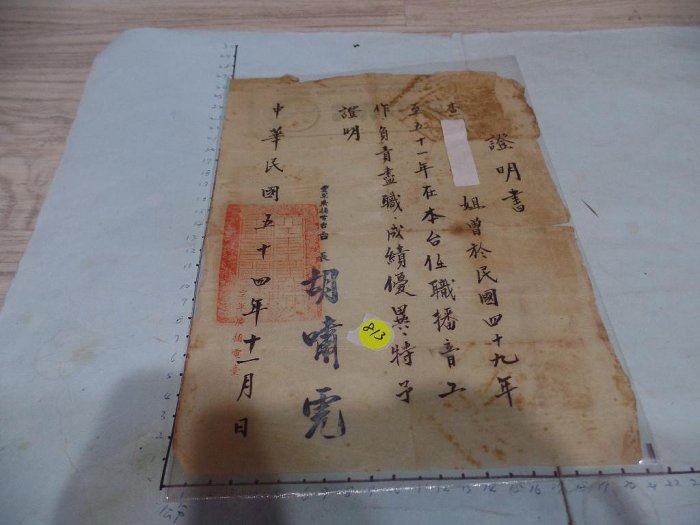 證明書
查
姐曾於民國四十九年
至五十一年在本台任職播音工
作負責盡職成績優異特予
證明
廣播電台台長
胡嘯虎
中華民國五十四年十一月 日
8/3